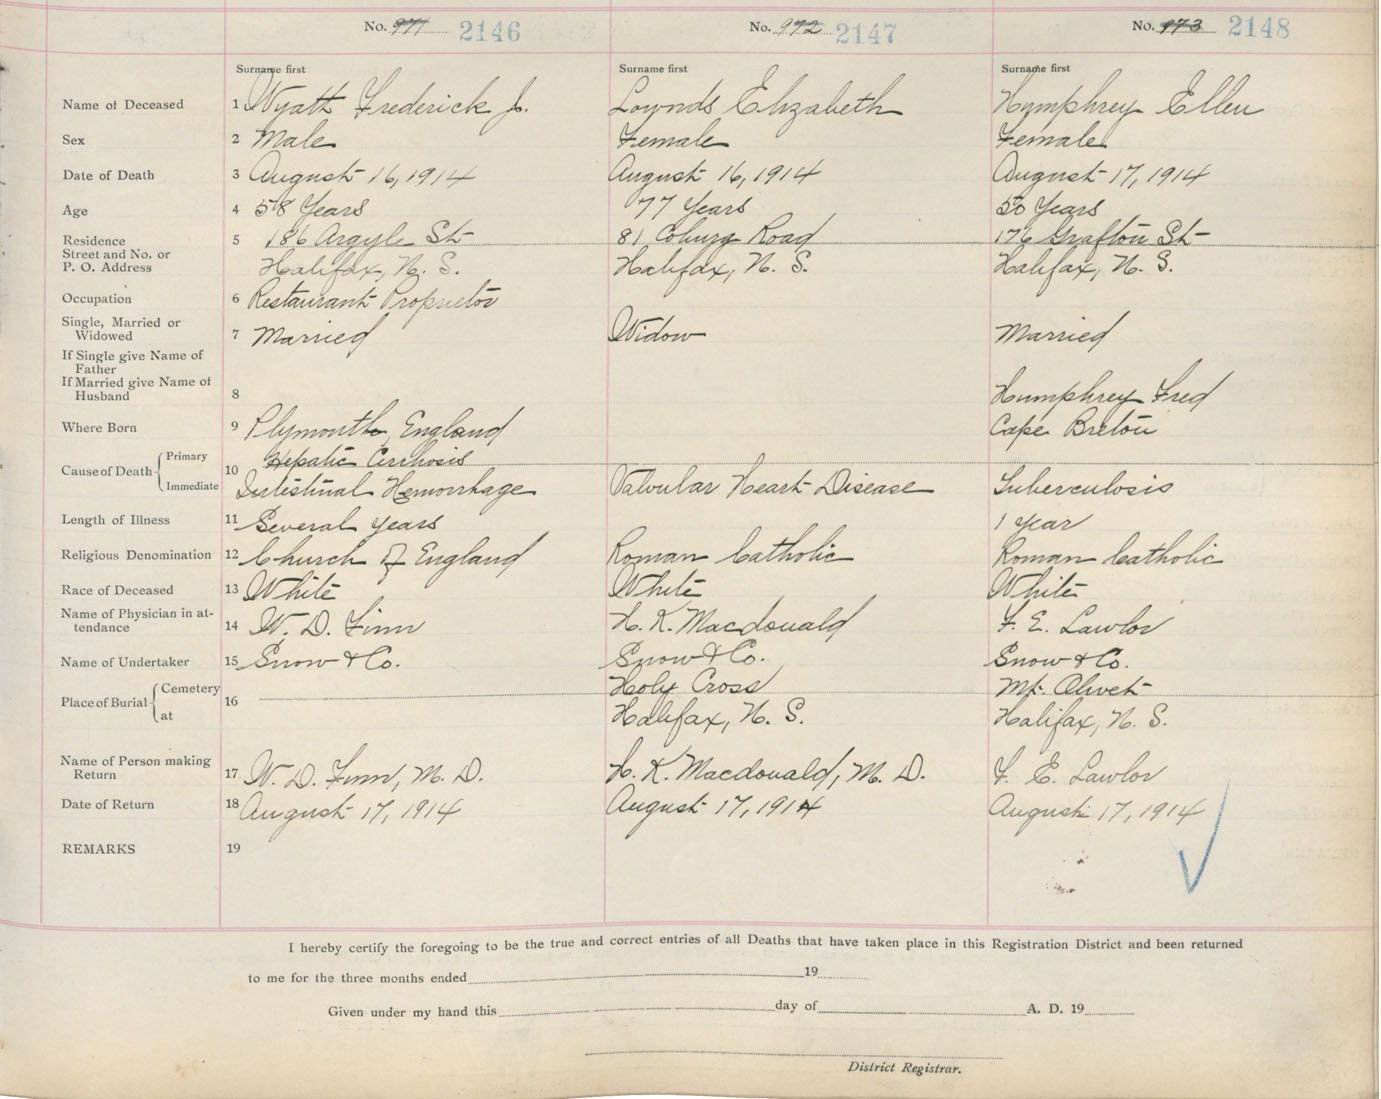 No. 971 2146 No. 972 2147 No. 973 2148
Surname first Surname first Surname first
Name of Deceased 1 Wyatt Frederick J. Lownds Elizabeth Humphrey Ellen
Sex 2 Male Female Female
Date of Death 3 August 16, 1914 August 16, 1914 August 17, 1914
Age 4 58 Years 77 Years 50 Years
Residence 5 186 Argyle St 81 Coburg Road 176 Grafton St
Street and No. or
P. O. Address Halifax, N. S. Halifax, N. S. Halifax, N. S.
Occupation 6 Restaurant Proprietor
Single, Married or
Widowed 7 Married Widow Married
If Single give Name of
Father
If Married give Name of
Husband 8 Humphrey Fred
Where Born 9 Plymouth, England Cape Breton
Primary Hepatic Cirrhosis
Cause of Death 10
Immediate Intestinal Hemorrhage Valvular Heart Disease Tuberculosis
Length of Illness 11 Several years 1 year
Religious Denomination 12 Church of England Roman Catholic Roman Catholic
Race of Deceased 13 White White White
Name of Physician in at-
tendance 14 W. D. Finn H. K. Macdonald F. E. Lawlor
Name of Undertaker 15 Snow & Co. Snow & Co. Snow & Co.
Cemetery Holy Cross Mt. Olivet
Place of Burial 16
at Halifax, N. S. Halifax, N. S.
Name of Person making
Return 17 W. D. Finn, M. D. H. K. Macdonald, M. D. F. E. Lawlor
Date of Return 18 August 17, 1914 August 17, 1914 August 17, 1914
REMARKS 19
I hereby certify the foregoing to be the true and correct entries of all Deaths that have taken place in this Registration District and been returned
to me for the three months ended 19
Given under my hand this day of A. D. 19
District Registrar.